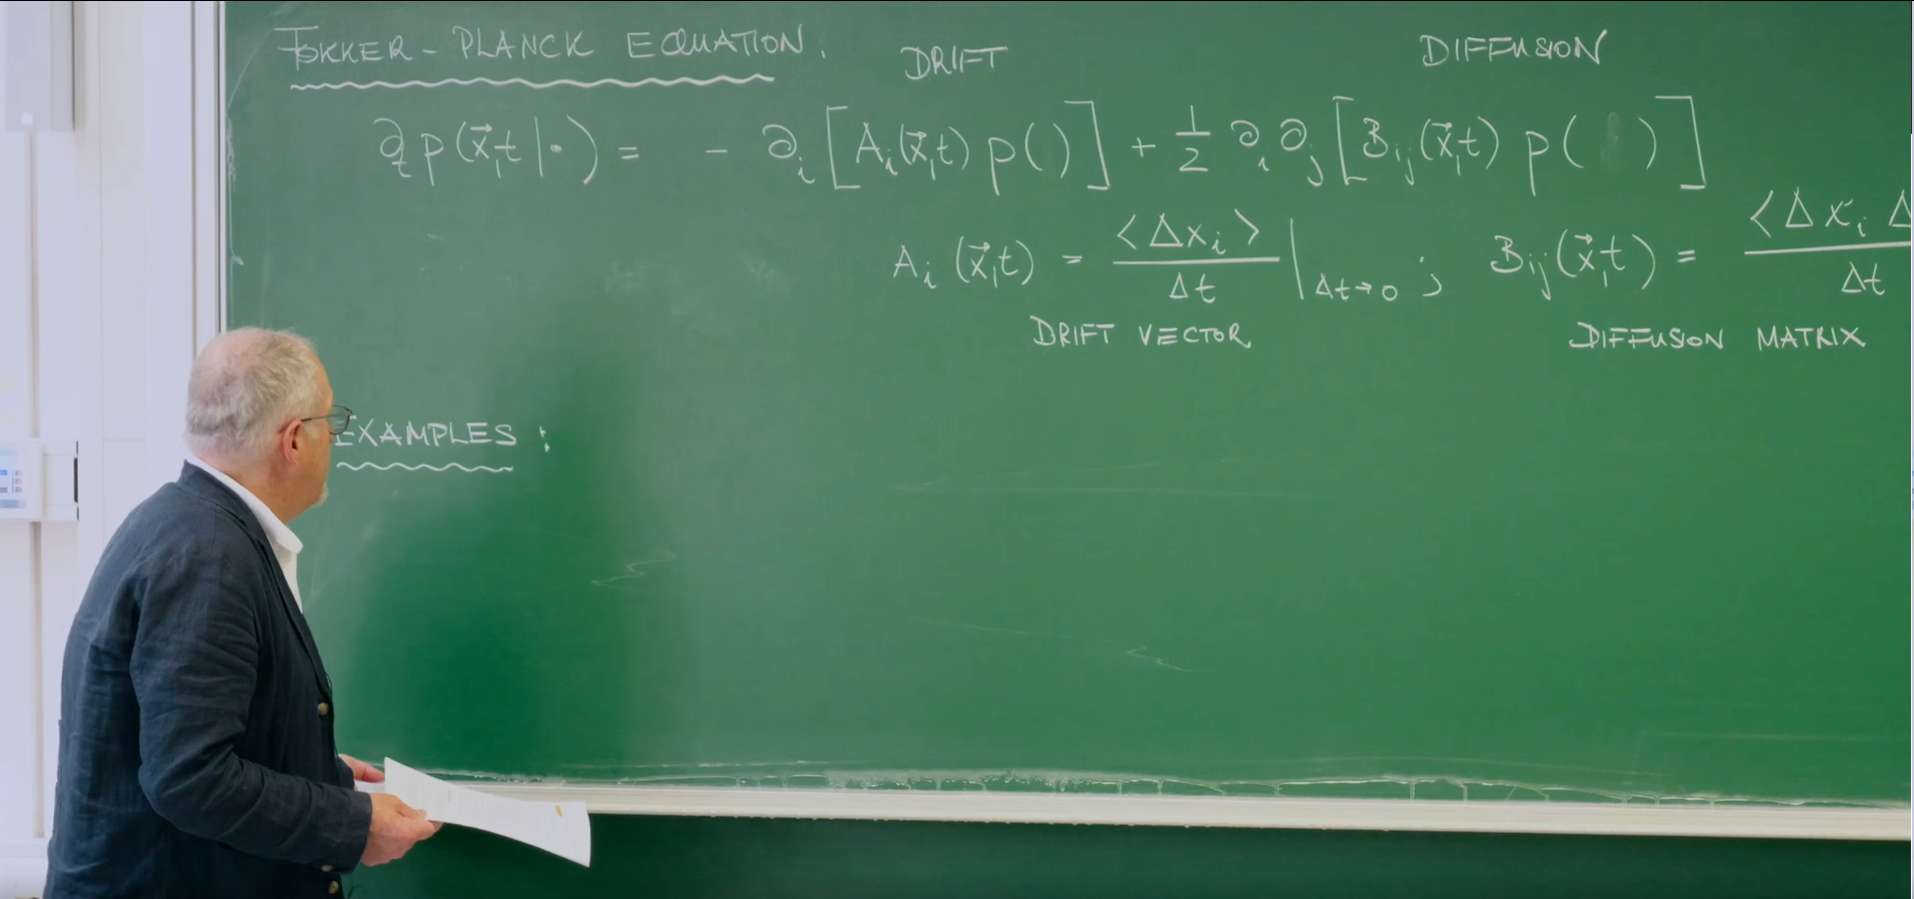 FOKKER - PLANCK EQUATION. DRIFT DIFFUSION
∂_t p(x⃗,t|·) = - ∂_i [A_i(x⃗,t) p( )] + 1/2 ∂_i ∂_j [B_ij(x⃗,t) p( )]
A_i (x⃗,t) = <Δx_i> / Δt |_Δt→0 ; B_ij(x⃗,t) = <Δx_i Δ / Δt
DRIFT VECTOR DIFFUSION MATRIX
EXAMPLES :